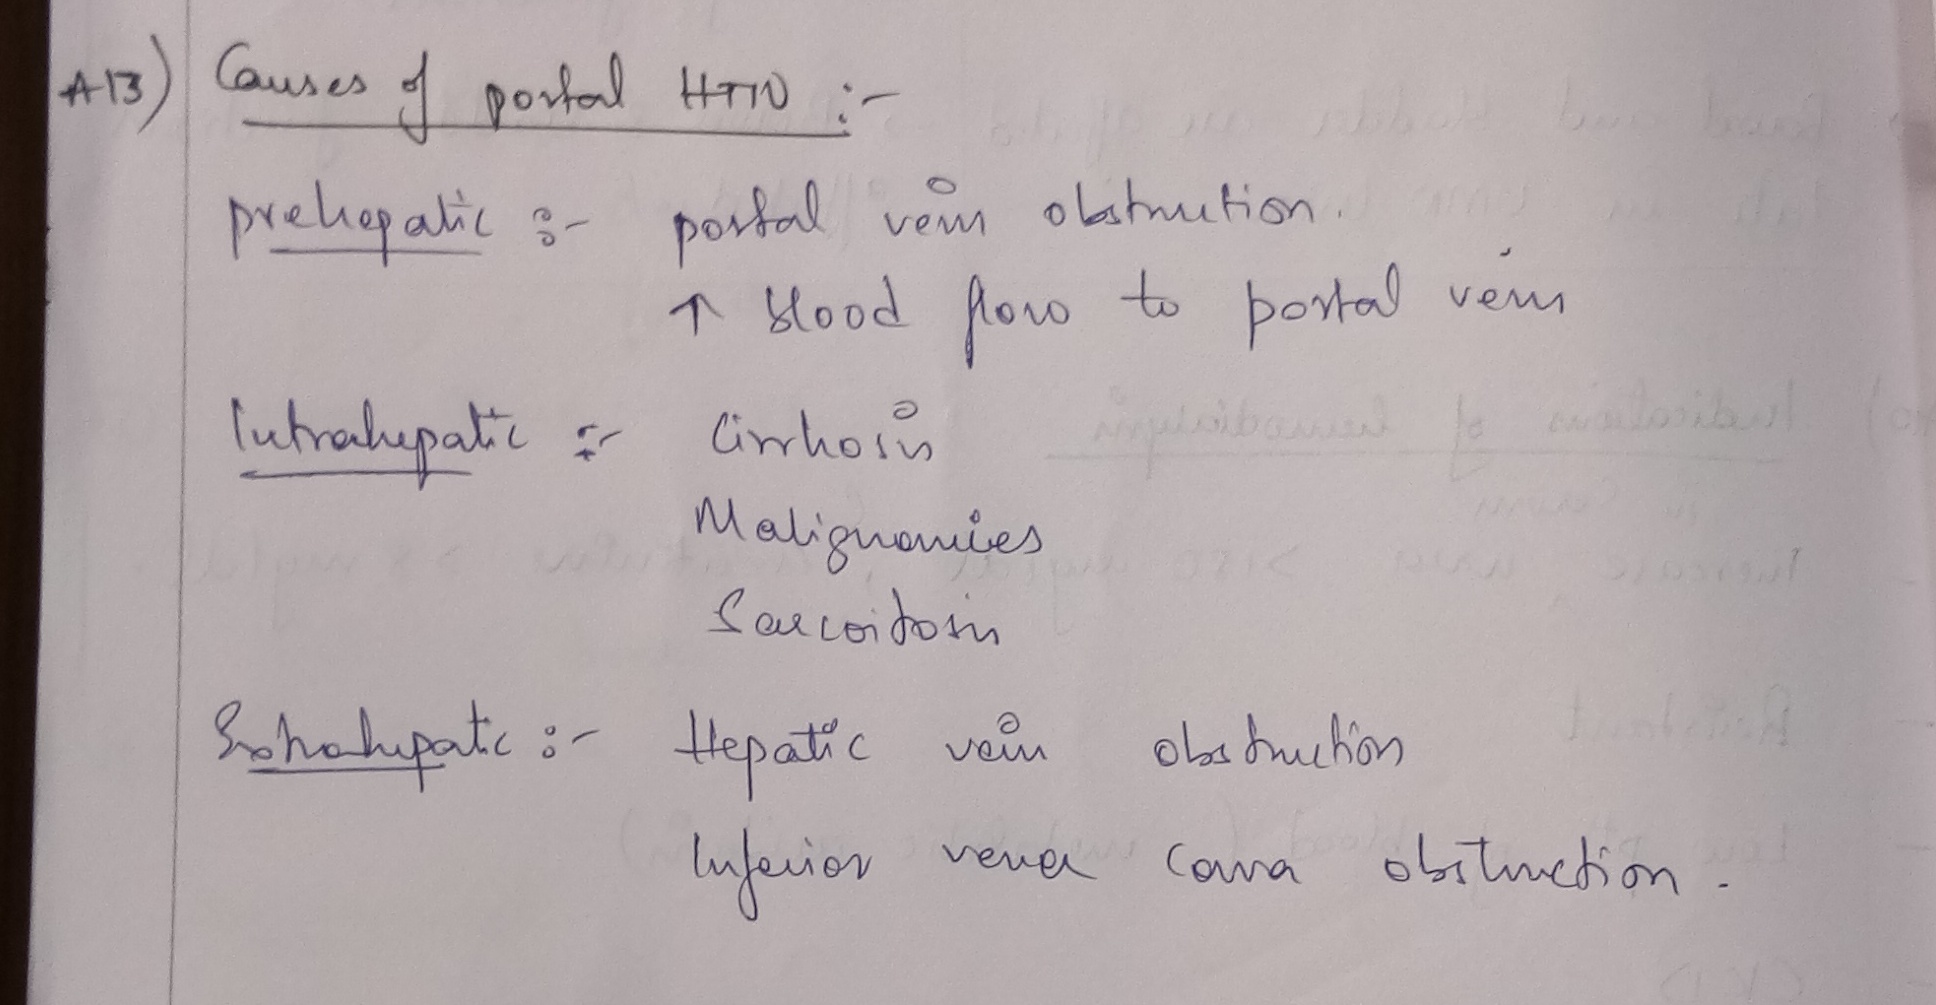 A13) Causes of portal HTN :-
prehepatic :- portal vein obstruction.
↑ blood flow to portal vein
Intrahepatic :- Cirrhosis
Malignancies
Sarcoidosis
Extrahepatic :- Hepatic vein obstruction
Inferior vena cava obstruction.